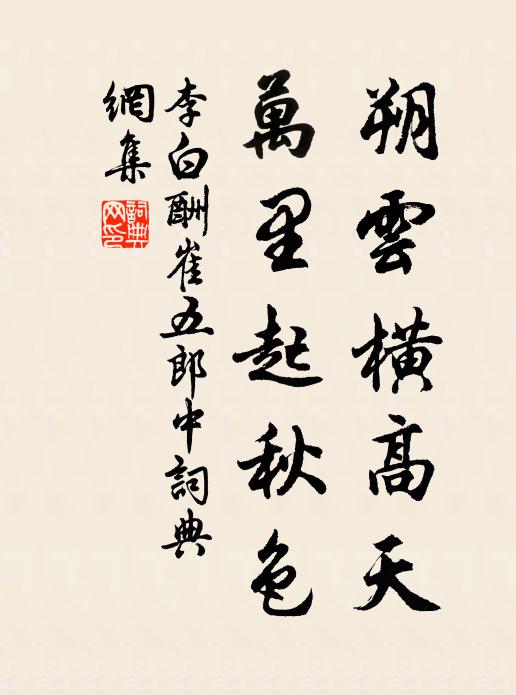 朔雲橫高天
萬里起秋色
李白酬崔五郎中詞典
網集
詞典
网印